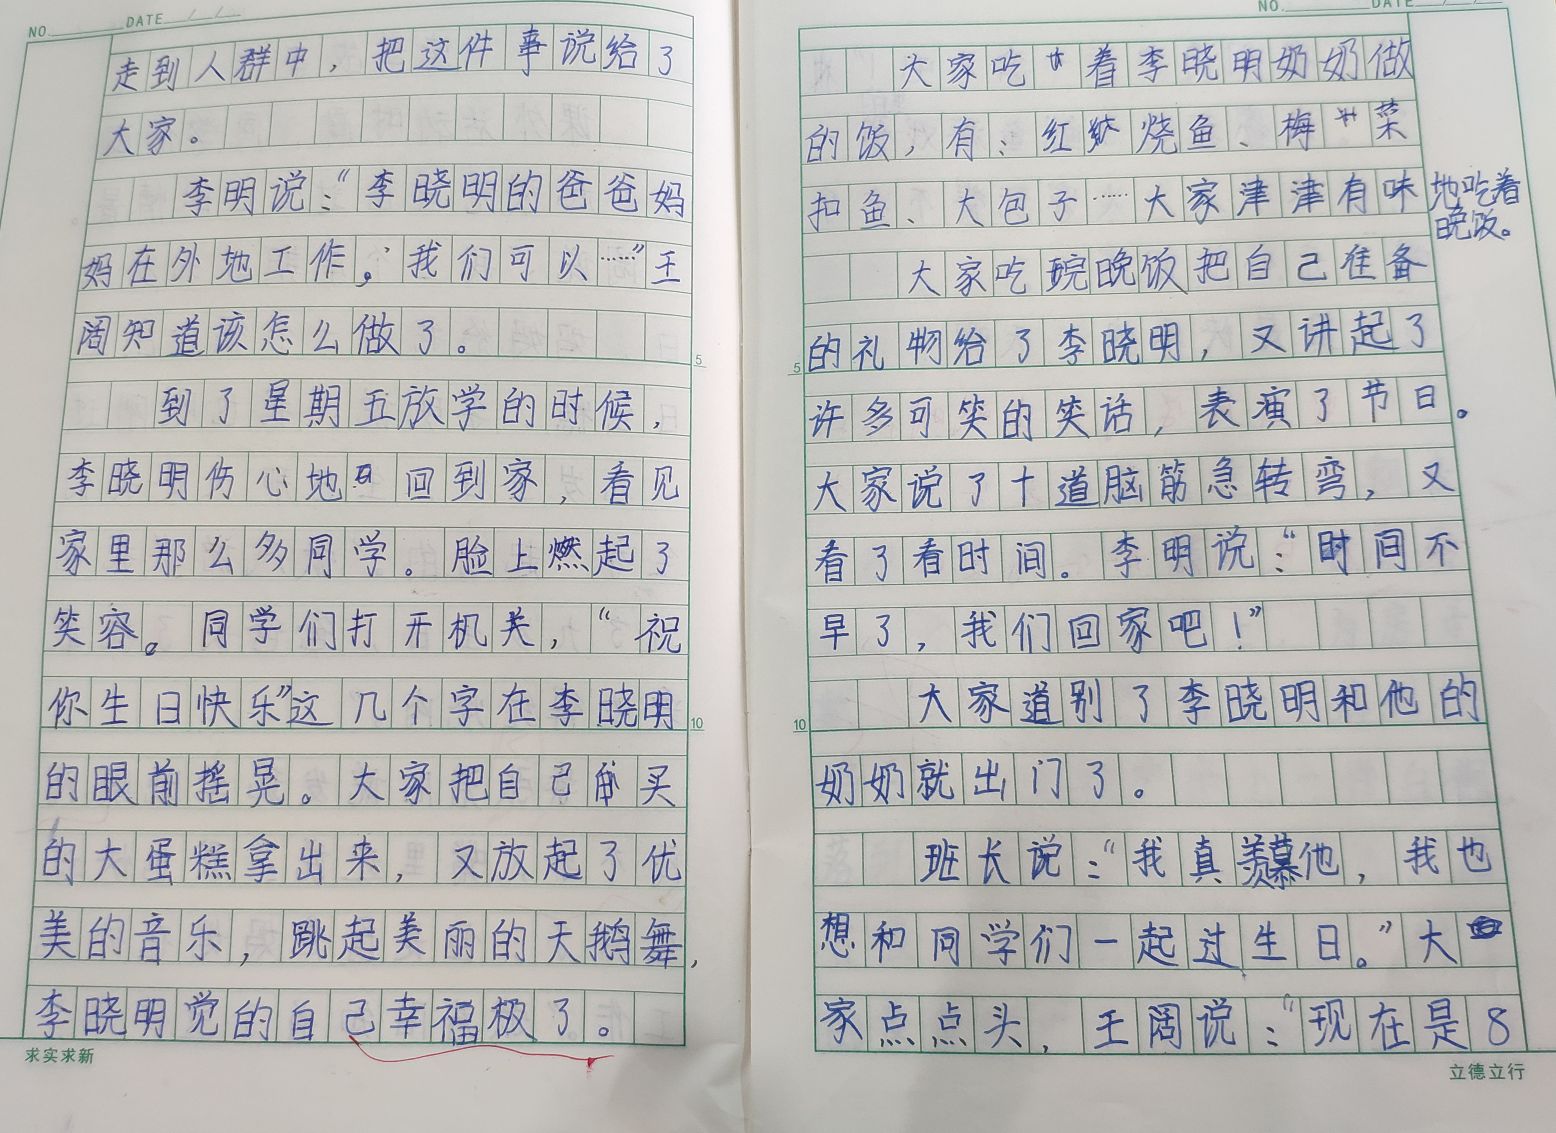 NO. DATE / /
走到人群中，把这件事说给了
大家。
李明说：“李晓明的爸爸妈
妈在外地工作，我们可以……”王
阔知道该怎么做了。
到了星期五放学的时候，
李晓明伤心地回到家，看见
家里那么多同学。脸上燃起了
笑容。同学们打开机关，“祝
你生日快乐”这几个字在李晓明
的眼前摇晃。大家把自己买
的大蛋糕拿出来，又放起了优
美的音乐，跳起美丽的天鹅舞，
李晓明觉的自己幸福极了。
5
10
求实求新
NO. DATE / /
大家吃着李晓明奶奶做
的饭，有：红烧鱼、梅菜
扣鱼、大包子……大家津津有味
地吃着
晚饭。
大家吃晚饭把自己准备
的礼物给了李晓明，又讲起了
许多可笑的笑话，表演了节目。
大家说了十道脑筋急转弯，又
看了看时间。李明说：“时间不
早了，我们回家吧！”
大家道别了李晓明和他的
奶奶就出门了。
班长说：“我真羡慕他，我也
想和同学们一起过生日。”大
家点点头，王阔说：“现在是8
5
10
立德立行